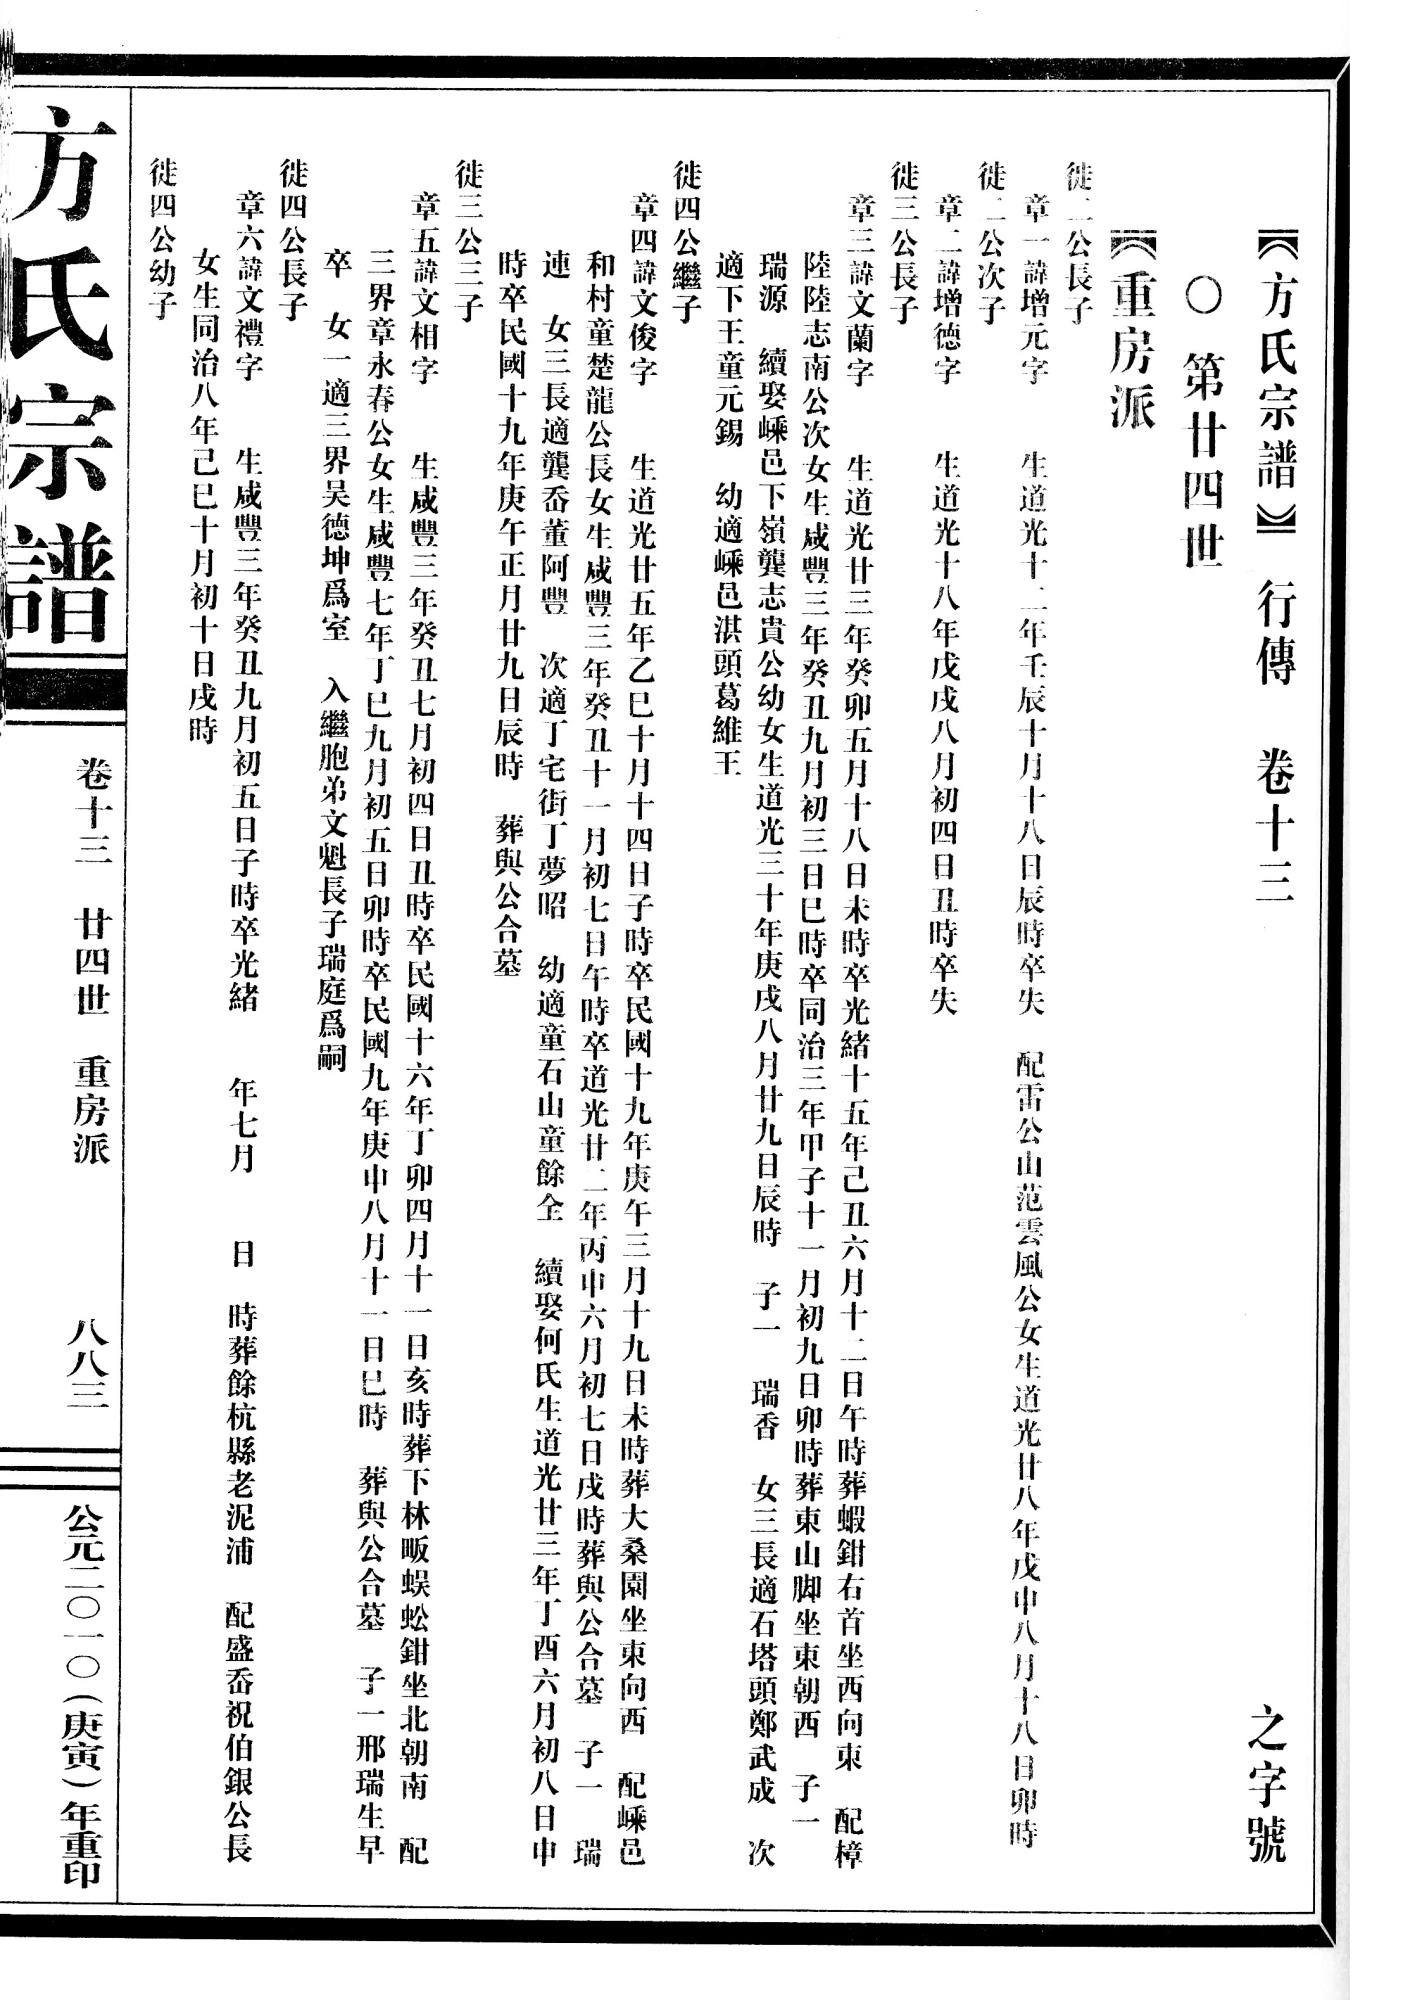 【《方氏宗譜》】 行傳 卷十三 之字號
○ 第廿四世
【《重房派
徙二公長子
章一諱增元字 生道光十二年壬辰十月十八日辰時卒失 配雷公山范雲風公女生道光廿八年戊申八月十八日卯時
徙二公次子
章二諱增德字 生道光十八年戊戌八月初四日丑時卒失
徙三公長子
章三諱文蘭字 生道光廿三年癸卯五月十八日未時卒光緒十五年己丑六月十二日午時葬蝦鉗右首坐西向東 配樟
陸陸志南公次女生咸豐三年癸丑九月初三日巳時卒同治三年甲子十一月初九日卯時葬東山脚坐東朝西 子一
瑞源 續娶嵊邑下嶺龔志貴公幼女生道光三十年庚戌八月廿九日辰時 子一 瑞香 女三長適石塔頭鄭武成 次
適下王童元錫 幼適嵊邑湛頭葛維王
徙四公繼子
章四諱文俊字 生道光廿五年乙巳十月十四日子時卒民國十九年庚午三月十九日未時葬大桑園坐東向西 配嵊邑
和村童楚龍公長女生咸豐三年癸丑十一月初七日午時卒道光廿二年丙申六月初七日戌時葬與公合墓 子一 瑞
連 女三長適龔岙董阿豐 次適丁宅街丁夢昭 幼適童石山童餘全 續娶何氏生道光廿三年丁酉六月初八日申
時卒民國十九年庚午正月廿九日辰時 葬與公合墓
徙三公三子
章五諱文相字 生咸豐三年癸丑七月初四日丑時卒民國十六年丁卯四月十一日亥時葬下林畈蜈蚣鉗坐北朝南 配
三界章永春公女生咸豐七年丁巳九月初五日卯時卒民國九年庚申八月十一日巳時 葬與公合墓 子一邢瑞生早
卒 女一適三界吴德坤爲室 入繼胞弟文魁長子瑞庭爲嗣
徙四公長子
章六諱文禮字 生咸豐三年癸丑九月初五日子時卒光緒 年七月 日 時葬餘杭縣老泥浦 配盛岙祝伯銀公長
女生同治八年己巳十月初十日戌時
徙四公幼子
方氏宗譜 卷十三 廿四世 重房派 八八三 公元二〇一〇（庚寅）年重印